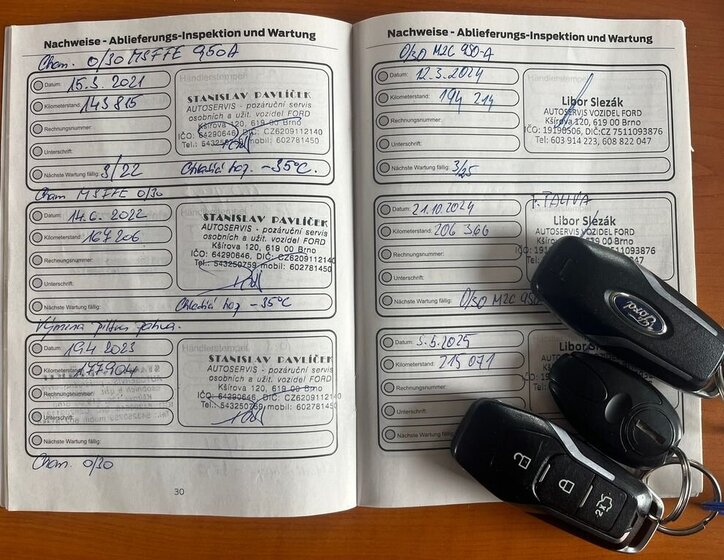 Nachweise - Ablieferungs-Inspektion und Wartung
Cham. 0/30 MSFFE 950A
Datum: 15.3.2021
Kilometerstand: 143 815
Rechnungsnummer:
Unterschrift:
Nächste Wartung fällig: 3/22
Händlerstempel
STANISLAV PAVLÍČEK
AUTOSERVIS - pozáruční servis
osobních a užit. vozidel FORD
Kšírova 120, 619 00 Brno
IČO: 64290646, DIČ: CZ6209112140
Tel.: 543250759 mobil: 602781450
Chladící kap. -35°C.
Cham MSFFE 0/30
Datum: 14.6.2022
Kilometerstand: 167206
Rechnungsnummer:
Unterschrift:
Nächste Wartung fällig:
STANISLAV PAVLÍČEK
AUTOSERVIS - pozáruční servis
osobních a užit. vozidel FORD
Kšírova 120, 619 00 Brno
IČO: 64290646, DIČ: CZ6209112140
Tel.: 543250759 mobil: 602781450
Chladící kap -35°C
Výmina filtru
Datum: 19.4 2023
Kilometerstand: 177904
Rechnungsnummer:
Unterschrift:
Nächste Wartung fällig:
STANISLAV PAVLÍČEK
AUTOSERVIS - pozáruční servis
osobních a užit. vozidel FORD
Kšírova 120, 619 00 Brno
IČO: 64290646, DIČ: CZ6209112140
Tel.: 543250759 mobil: 602781450
Cham. 0/30
30
Nachweise - Ablieferungs-Inspektion und Wartung
0/30 M2C 950-A
Datum: 12.3.2024
Kilometerstand: 194 214
Rechnungsnummer:
Unterschrift:
Nächste Wartung fällig: 3/25
Händlerstempel
Libor Slezák
AUTOSERVIS VOZIDEL FORD
Kšírova 120, 619 00 Brno
IČO: 19190506, DIČ:CZ 7511093876
Tel.: 603 914 223, 608 822 047
F. PALIVA
Datum: 21.10.2024
Kilometerstand: 206 366
Rechnungsnummer:
Unterschrift:
Nächste Wartung fällig:
Libor Slezák
AUTOSERVIS VOZIDEL FORD
Kšírova 120, 619 00 Brno
0/30 M2C 950
Datum: 3.6.2025
Kilometerstand: 215 071
Rechnungsnummer:
Unterschrift:
Nächste Wartung fällig:
Libor Slezák
Ford
2x